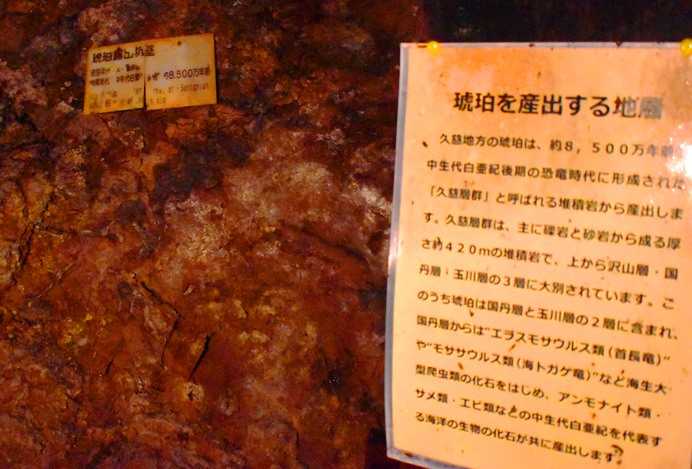 琥珀露出坑壁
8,500万年前
琥珀を産出する地層
久慈地方の琥珀は、約8,500万年前
中生代白亜紀後期の恐竜時代に形成された
「久慈層群」と呼ばれる堆積岩から産出しま
す。久慈層群は、主に礫岩と砂岩から成る厚
さ約420mの堆積岩で、上から沢山層・国
丹層・玉川層の3層に大別されています。こ
のうち琥珀は国丹層と玉川層の2層に含まれ、
国丹層からは"エラスモサウルス類（首長竜）"
や"モササウルス類（海トカゲ竜）"など海生大
型爬虫類の化石をはじめ、アンモナイト類・
サメ類・エビ類などの中生代白亜紀を代表す
る海洋の生物の化石が共に産出します。